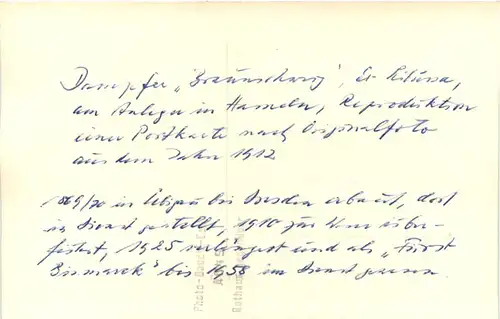 Dampfer „Braunschweig", Ex
am Anleger in Hameln, Reproduktion
einer Postkarte nach Originalfoto
aus dem Jahre 1912
1869/70 in bis Dresden erbaut, dort
in Dienst gestellt, 1910 zur Weser über-
führt, 1925 verlängert und als „Fürst
Bismarck" bis 1958 im Dienst gewesen.
Photo-
Rathaus